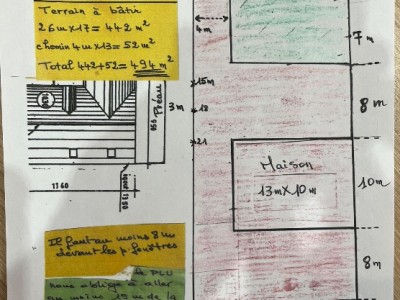 Terrain à bâtir
26m x 17 = 442 m²
chemin 4m x 13 = 52 m²
Total 442+52 = 494 m²
4m
7m
15m
18
21
3m
Préau
8m
Maison
13m x 10m
10m
1760
Il faut au moins 8m
devant les p. fenêtres
8m
PLU
nous oblige à aller
au moins 15m de la